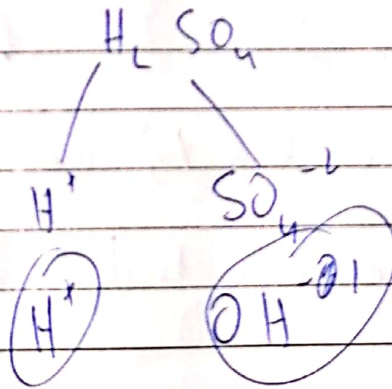 H₂ SO₄
H⁺ SO₄⁻²
H⁺ OH⁻¹